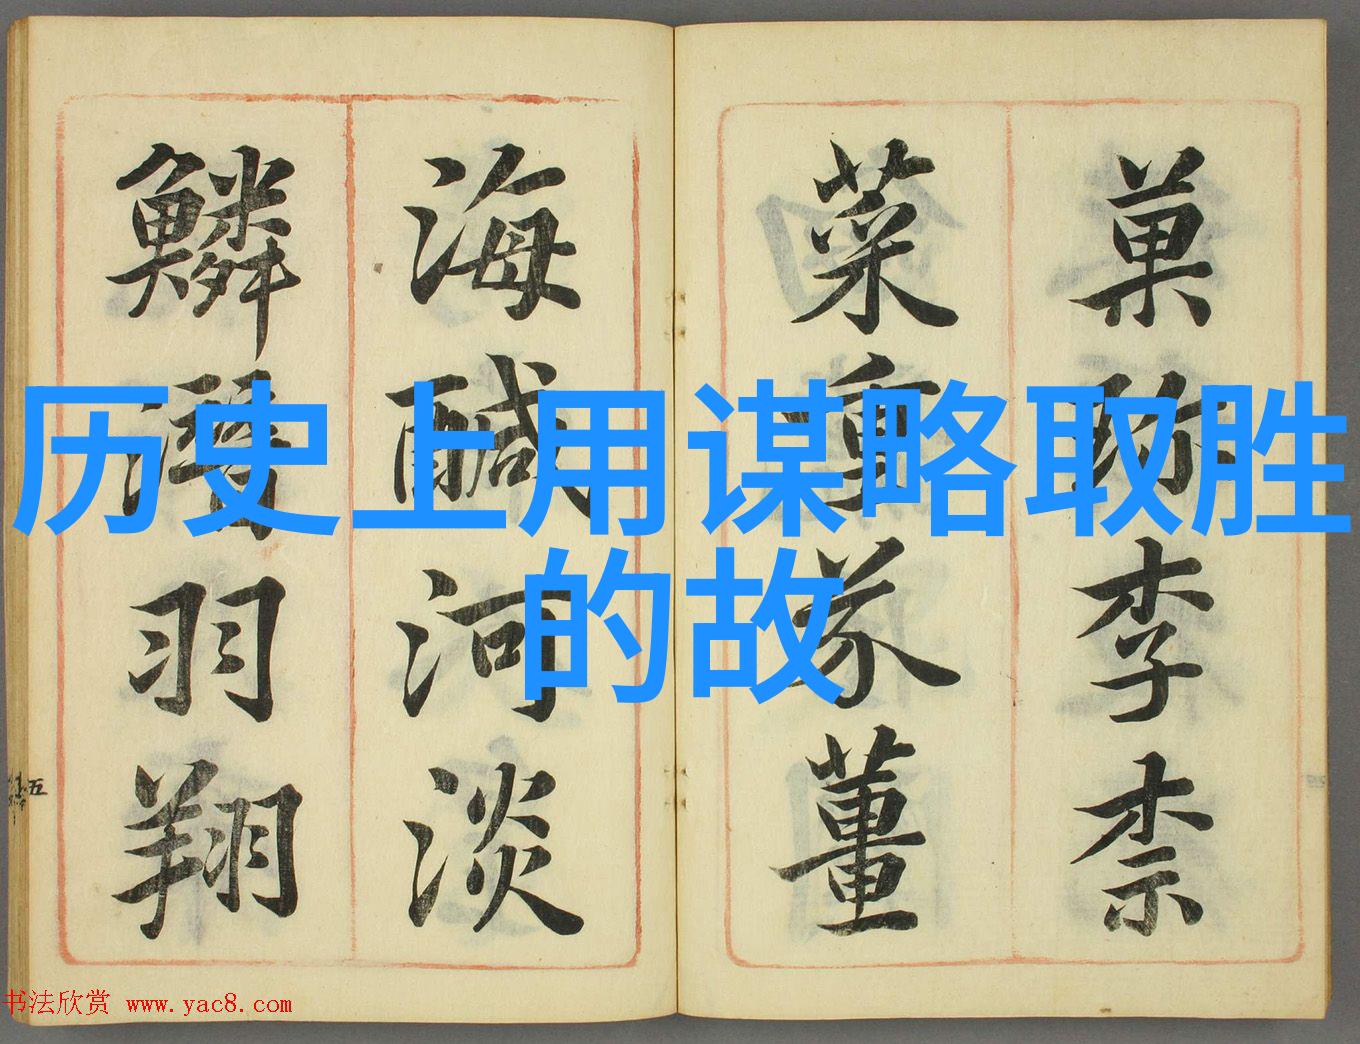 历史上用谋略取胜
的故
菓珎李柰
菜重芥薑
海醎河淡
鱗潛羽翔
五
书法欣赏 www.yac8.com